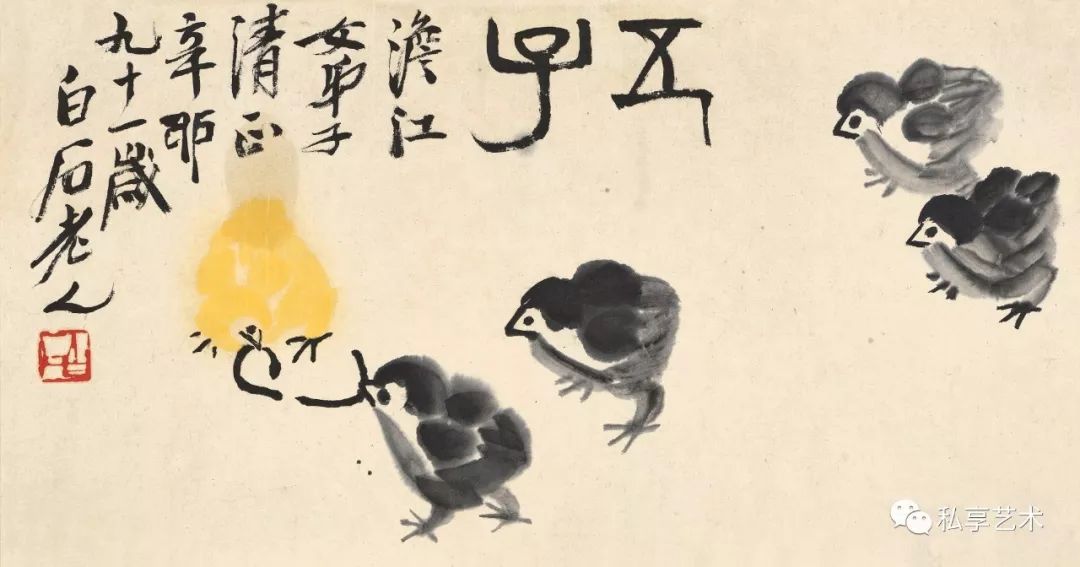 五子
澹江
女弟子
清正
辛卯
九十一歲
白石老人
私享艺术